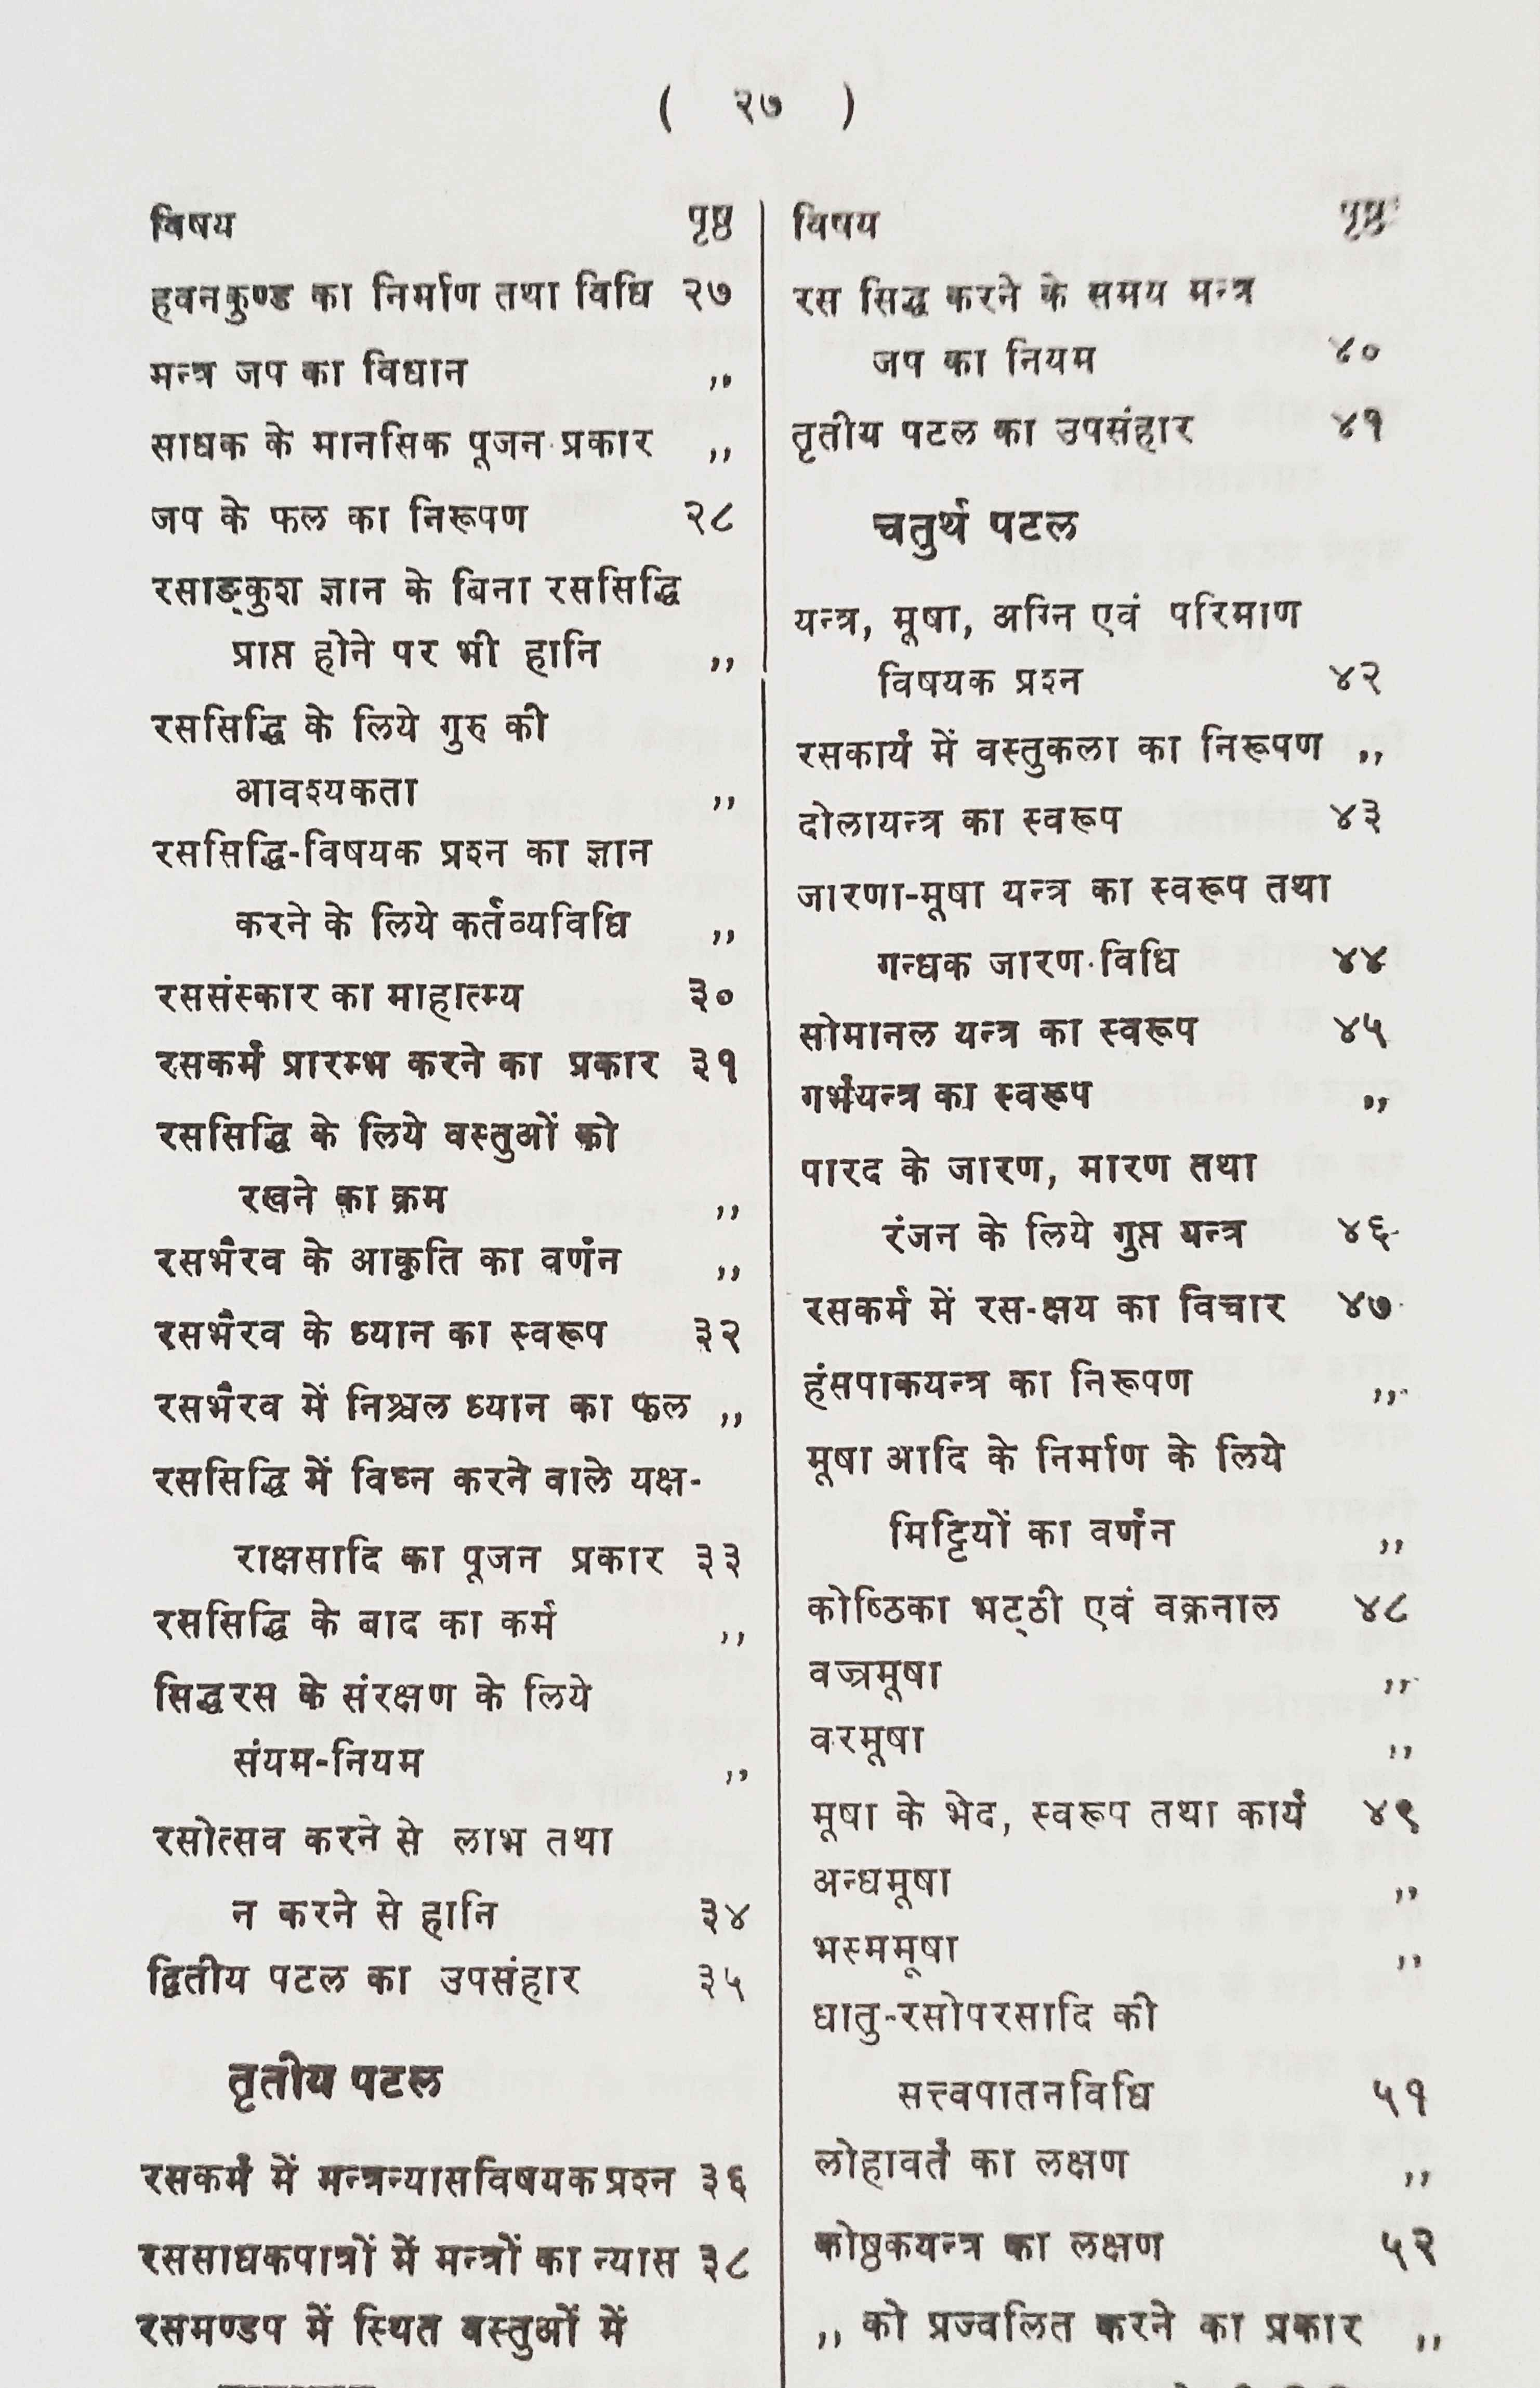 ( २७ )
विषय पृष्ठ
हवनकुण्ड का निर्माण तथा विधि २७
मन्त्र जप का विधान ,,
साधक के मानसिक पूजन प्रकार ,,
जप के फल का निरूपण २८
रसाङ्कुश ज्ञान के बिना रससिद्धि
प्राप्त होने पर भी हानि ,,
रससिद्धि के लिये गुरु की
आवश्यकता ,,
रससिद्धि-विषयक प्रश्न का ज्ञान
करने के लिये कर्तव्यविधि ,,
रससंस्कार का माहात्म्य ३०
रसकर्म प्रारम्भ करने का प्रकार ३१
रससिद्धि के लिये वस्तुओं को
रखने का क्रम ,,
रसभैरव के आकृति का वर्णन ,,
रसभैरव के ध्यान का स्वरूप ३२
रसभैरव में निश्चल ध्यान का फल ,,
रससिद्धि में विघ्न करने वाले यक्ष-
राक्षसादि का पूजन प्रकार ३३
रससिद्धि के बाद का कर्म ,,
सिद्धरस के संरक्षण के लिये
संयम-नियम ,,
रसोत्सव करने से लाभ तथा
न करने से हानि ३४
द्वितीय पटल का उपसंहार ३५
तृतीय पटल
रसकर्म में मन्त्रन्यासविषयक प्रश्न ३६
रससाधकपात्रों में मन्त्रों का न्यास ३८
रसमण्डप में स्थित वस्तुओं में
विषय पृष्ठ
रस सिद्ध करने के समय मन्त्र
जप का नियम ४०
तृतीय पटल का उपसंहार ४१
चतुर्थ पटल
यन्त्र, मूषा, अग्नि एवं परिमाण
विषयक प्रश्न ४२
रसकार्य में वस्तुकला का निरूपण ,,
दोलायन्त्र का स्वरूप ४३
जारणा-मूषा यन्त्र का स्वरूप तथा
गन्धक जारण विधि ४४
सोमानल यन्त्र का स्वरूप ४५
गर्भयन्त्र का स्वरूप ,,
पारद के जारण, मारण तथा
रंजन के लिये गुप्त यन्त्र ४६
रसकर्म में रस-क्षय का विचार ४७
हंसपाकयन्त्र का निरूपण ,,
मूषा आदि के निर्माण के लिये
मिट्टियों का वर्णन ,,
कोष्ठिका भट्ठी एवं वक्रनाल ४८
वज्रमूषा ,,
वरमूषा ,,
मूषा के भेद, स्वरूप तथा कार्य ४९
अन्धमूषा ,,
भस्ममूषा ,,
धातु-रसोपरसादि की
सत्त्वपातनविधि ५१
लोहावर्त का लक्षण ,,
कोष्ठकयन्त्र का लक्षण ५२
,, को प्रज्वलित करने का प्रकार ,,